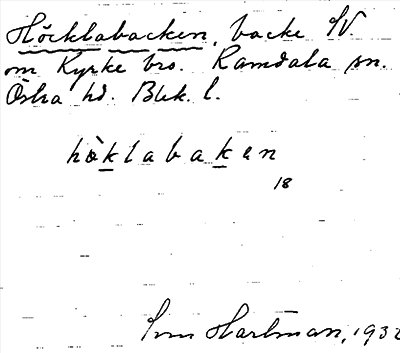 Höcklabacken, backe SV
om Kyrke bro. Ramdala sn.
Östra hd. Blek. l.
hòklabaken
18
Hartman, 1932